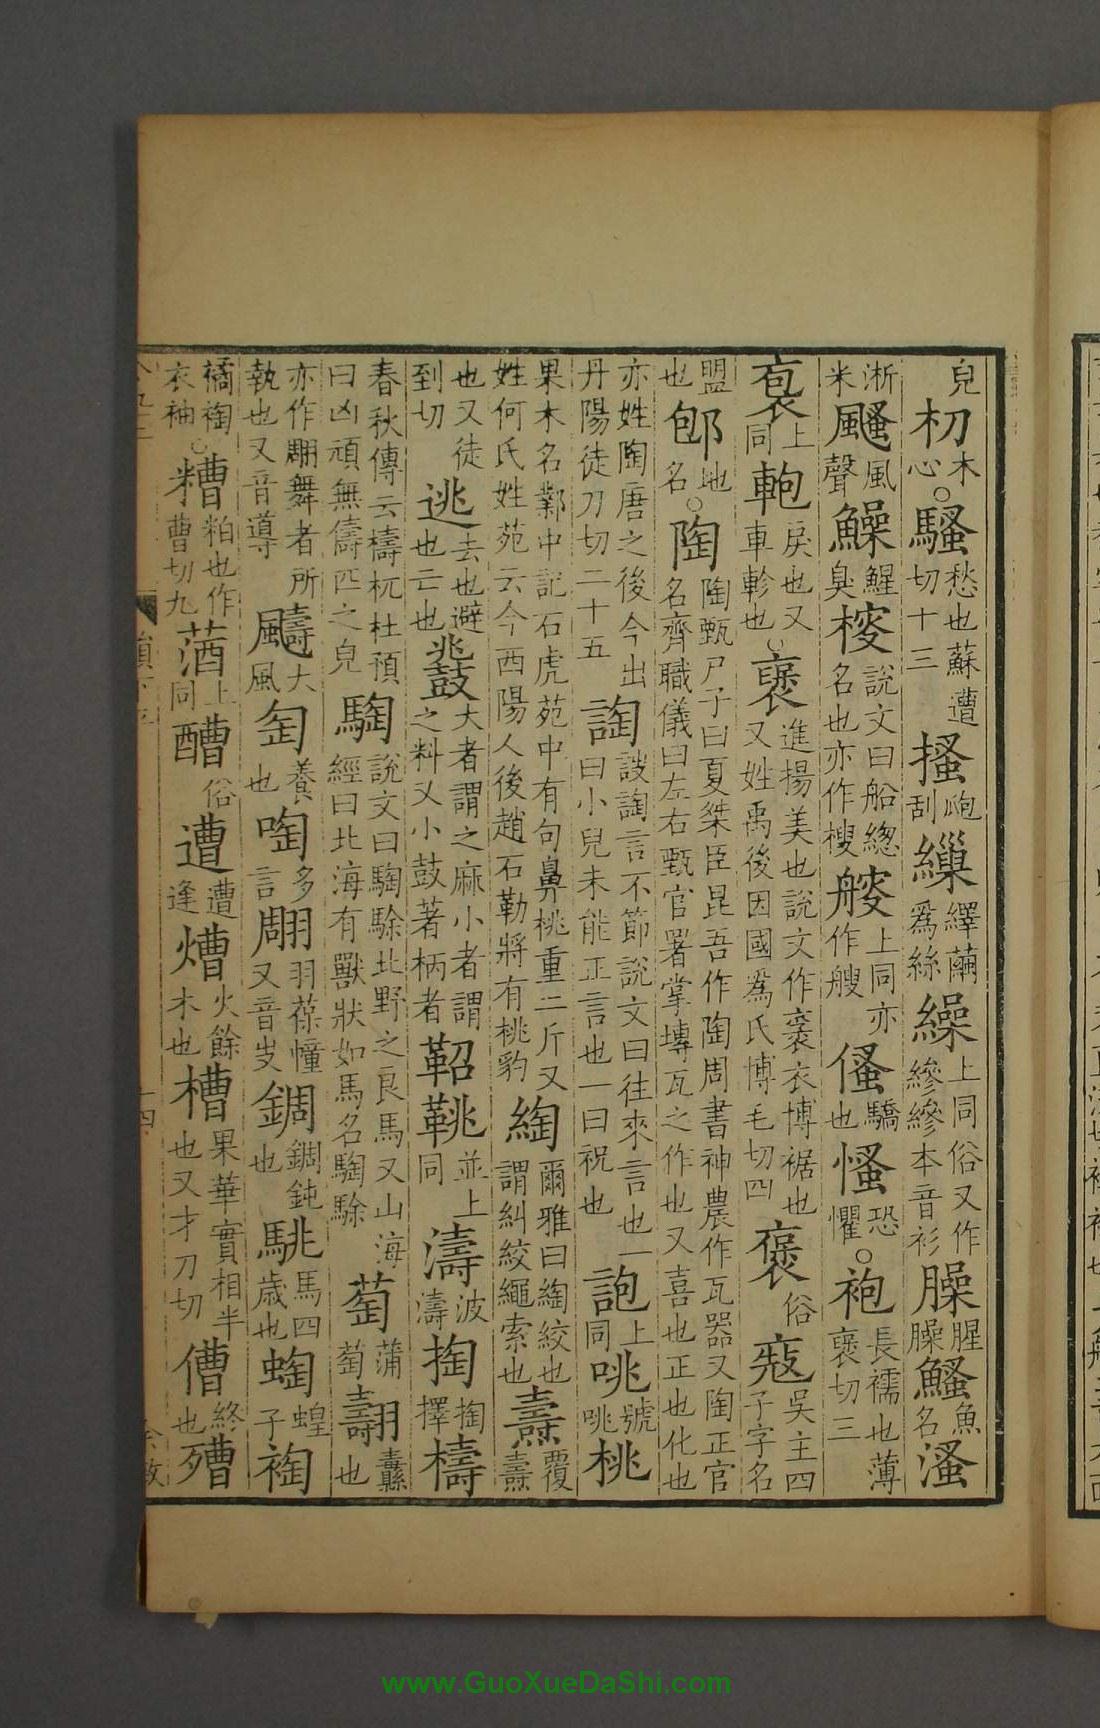 皃朷木心○騷愁也蘇遭切十三搔刮𤿈繅繹繭爲絲繰上同俗又作縿縿本音衫臊腥臊鰠魚名溞
淅米颾風聲鱢鯹臭㮴說文曰船總名也亦作樎艘上同亦作艘傜驕也慅恐懼○袍長襦也薄褒切三
袌上同軳戾也又車軫也○褒進揚美也說文作襃衣博裾也又姓禹後因國爲氏博毛切四襃俗㝃吳主四子字名
盟也郇地名○陶陶甄尸子曰夏桀臣昆吾作陶周書神農作瓦器又陶正官名齊職儀曰左右甄官署掌塼瓦之作也又喜也正也化也
亦姓陶唐之後今出丹陽徒刀切二十五詾詜詾言不節說文曰往來言也一曰小兒未能正言也一曰祝也詢上同咷號咷桃
果木名鄴中記石虎苑中有句鼻桃重二斤又姓何氏姓苑云今西陽人後趙石勒將有桃豹綯爾雅曰綯絞也謂糾絞繩索也燾覆燾
也又徒到切逃去也避也亡也鼗大者謂之麻小者謂之料又小鼓著柄者鞀鞉並上同濤波濤掏掏擇檮
春秋傳云檮杌杜預曰凶頑無儔匹之皃騊說文曰騊駼北野之良馬又山海經曰北海有獸狀如馬名騊駼萄蒲萄翿纛也
亦作翢舞者所執也又音導䬞大風匋養也啕多言翢羽葆幢又音岁錭錭鈍也駣馬四歳也蜪蝗子裪
䙚裪衣袖○糟粕也作曹切九蕕上同醩俗遭遭逢熸火餘木也槽果華實相半也又才刀切傮終也殰
www.GuoXueDaShi.com